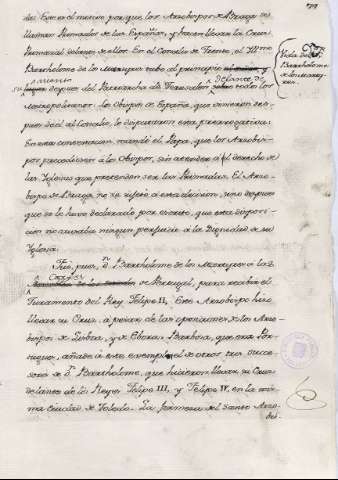 des. Este es el motivo porque los Arzobispos de Braga se
llaman Primados de las Españas, y hacen llevar la Cruz
Primacial delante de ellos. En el Concilio de Trento, el Yllmo
Bartholome de los Martyres tubo al principio
su asiento despues del Patriarcha de Jerusalen delante de todos los
Metropolitanos: los Obispos de España, que vinieron des-
pues de él al Concilio, le disputaron esta prerrogativa:
En esta contestacion mandó el Papa, que los Arzobis-
pos precediesen a los Obispos, sin atender a el derecho de
las Yglesias que pretenden ser las Primadas. El Arzo-
bispo de Braga no se sujetó a esta decision, sino despues
que se le huvo declarado por escrito, que esta disposi-
cion no causaba ningun perjuicio a la Dignidad de su
Yglesia.
Fué, pues, Dn. Bartholome de los Martyres a las
Cortes de Portugal, para recibir el
Juramento del Rey Felipe II. Este Arzobispo hizo
llevar su Cruz, a pesar de las oposiciones de los Arzo-
bispos de Lisboa, y de Ebora: Barbosa, que era Por-
tugues, añade a este exemplo el de otros tres succe-
sores de Dn. Bartholome, que hicieron llevar su Cruz
delante de los Reyes Felipe III, y Felipe IV, en la mis-
ma Ciudad de Toledo. La firmeza del Santo Arzo-
bis-
Vida de Dn.
Bartholome
de los Marty-
res.